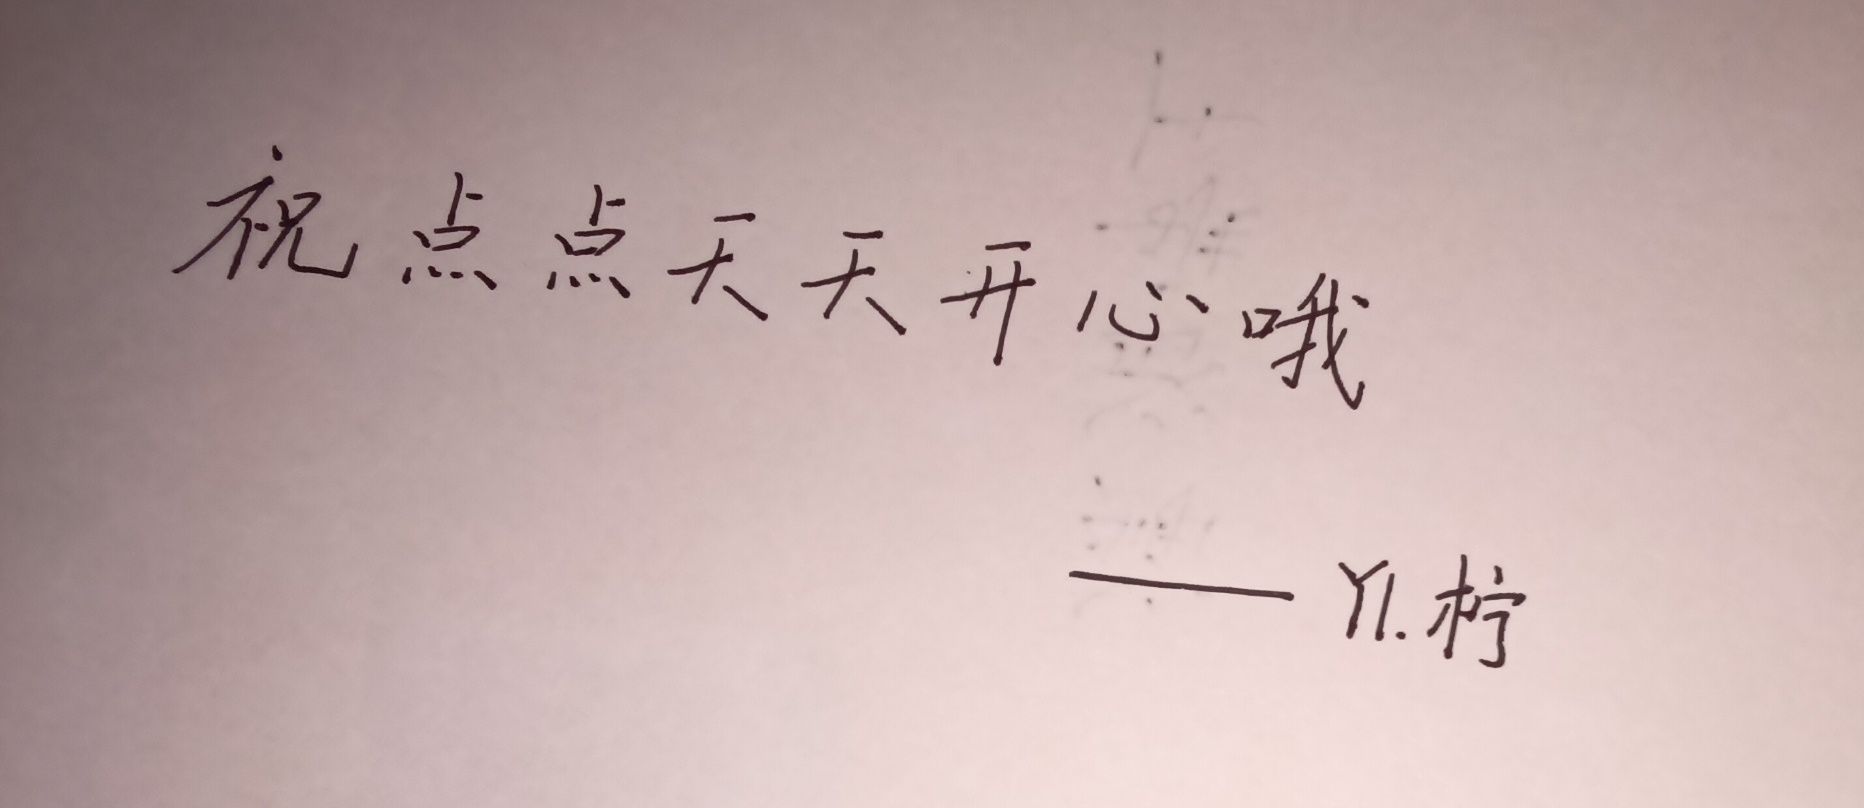 祝点点天天开心哦
——YI.柠